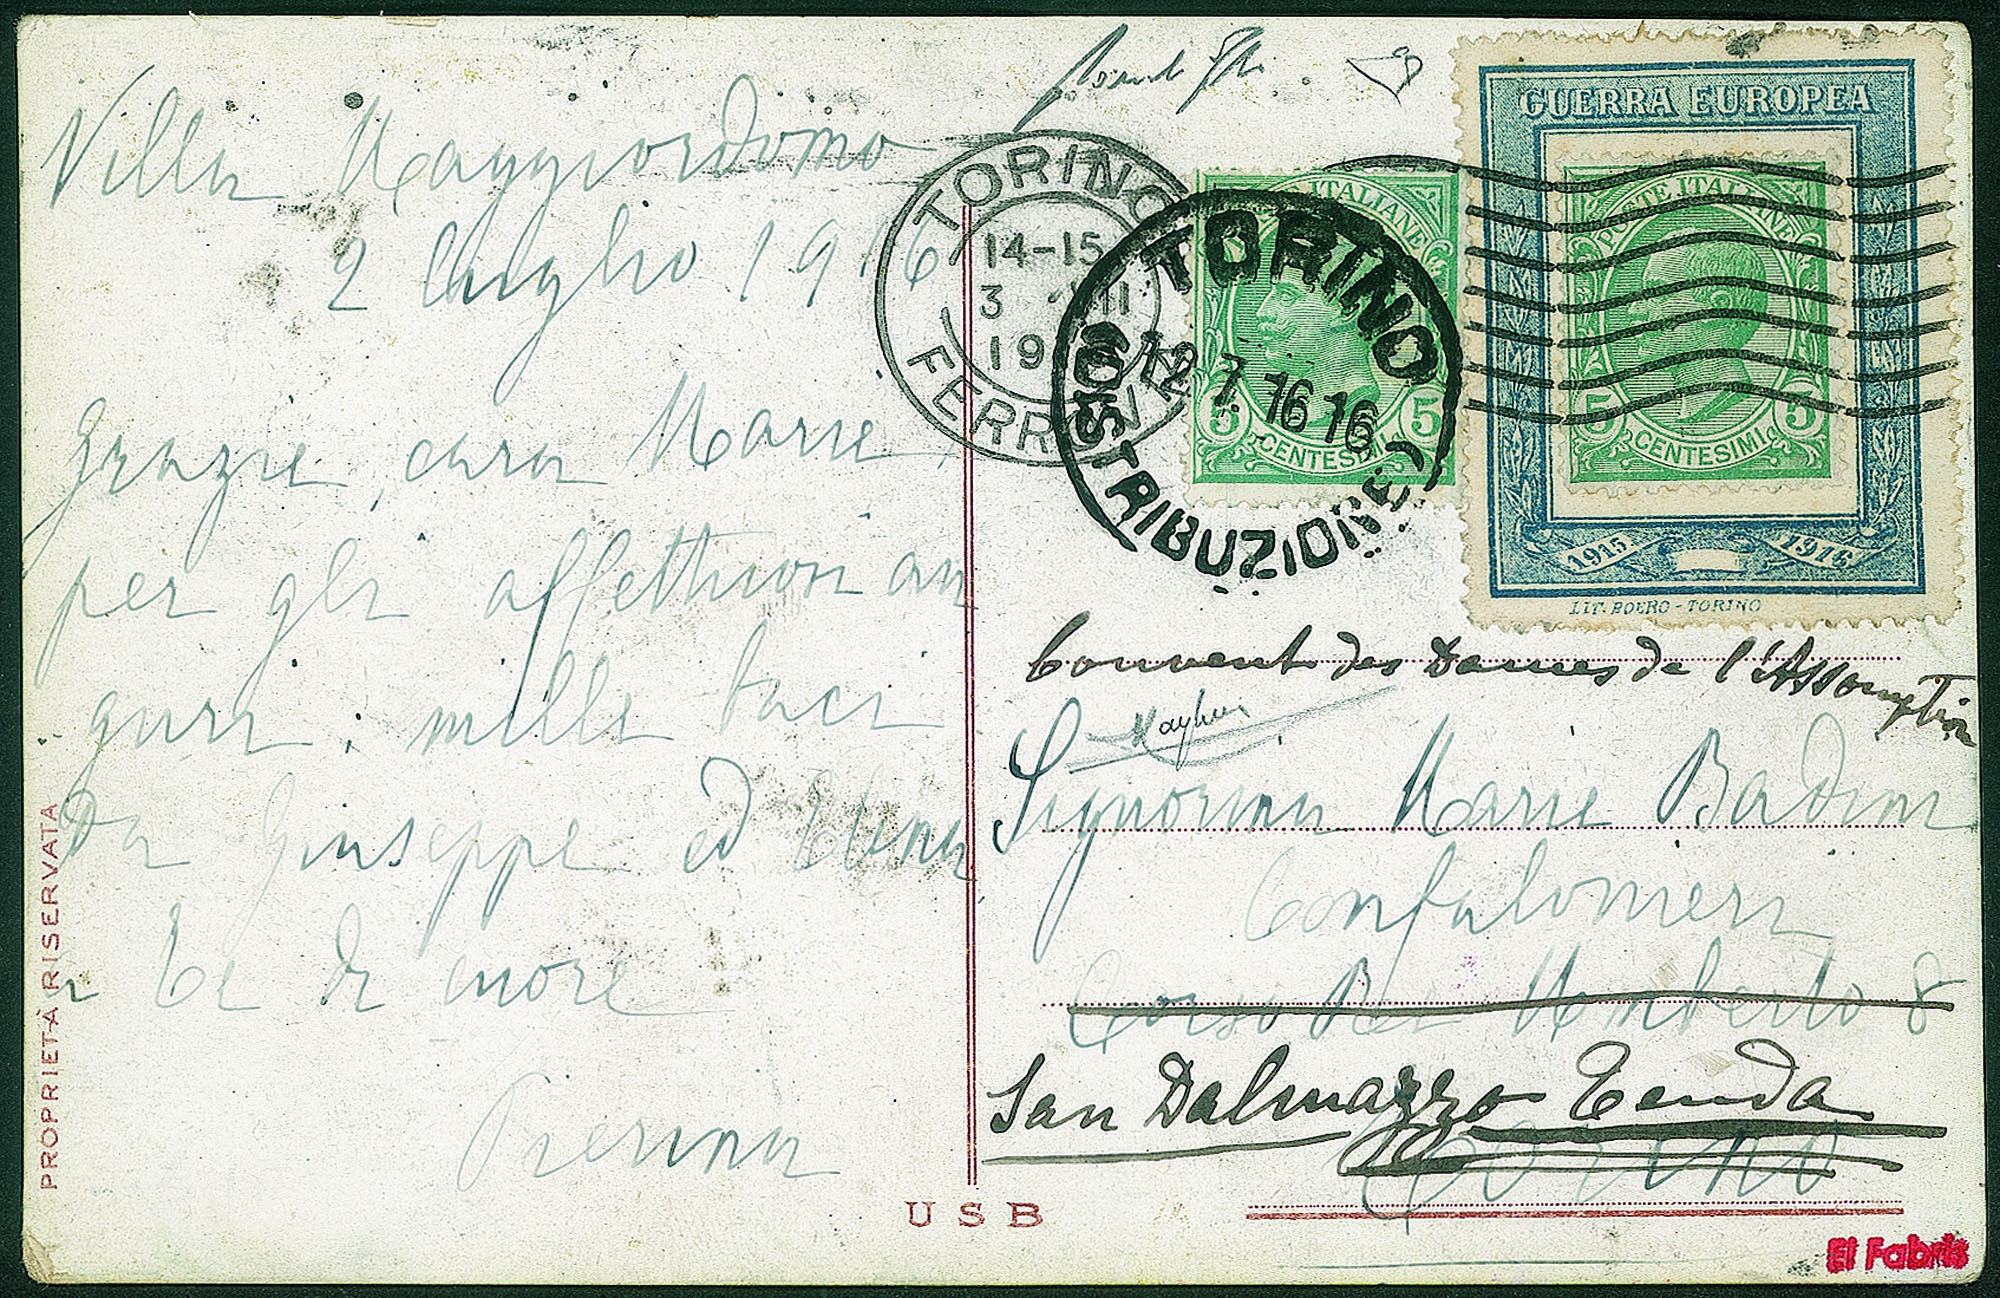 Villa Maggiordomo
2 luglio 1916
Grazie, cara Marie,
per gli affettuosi au
guri; mille baci
da Giuseppe ed Elena
a Te di cuore
Pierina
PROPRIETÀ RISERVATA
USB
TORINO
14-15
3 VII
19
FERROVIA
TORINO
12 7 16 16
DISTRIBUZIONE
POSTE ITALIANE
5 CENTESIMI 5
GUERRA EUROPEA
POSTE ITALIANE
5 CENTESIMI 5
1915 1916
LIT. BOERO - TORINO
Convent des Dames de l'Assomption
Signorina Marie Badini
Confalonieri
Corso Re Umberto 8
San Dalmazzo Tenda
Torino
El Fabris